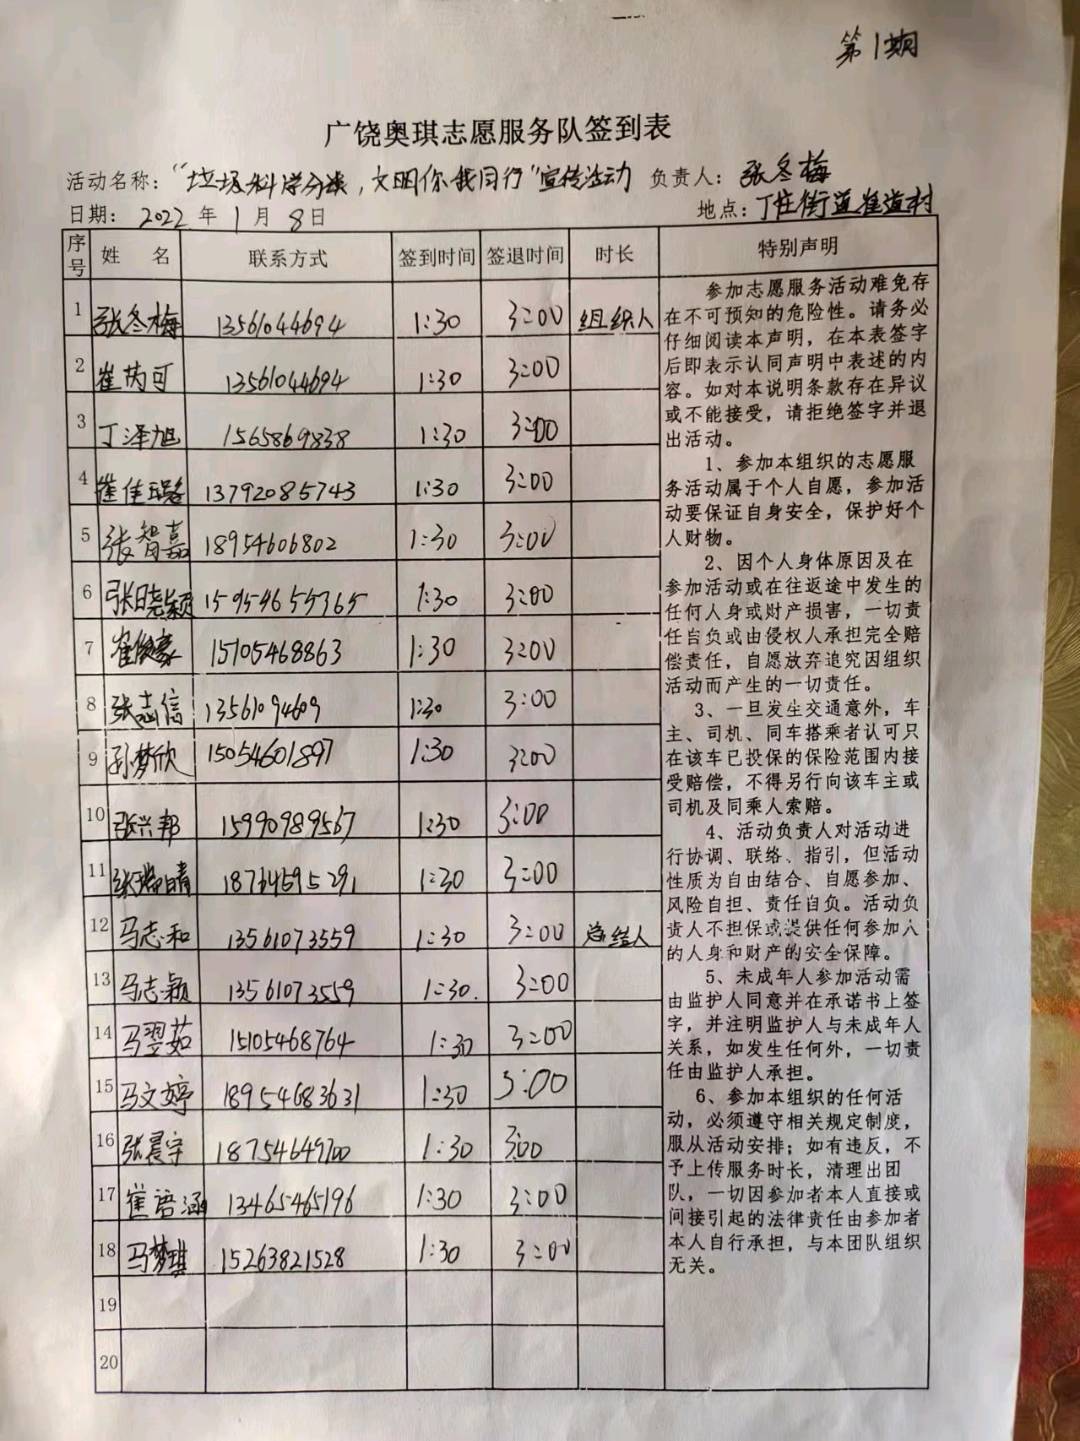 第1期
广饶奥琪志愿服务队签到表
活动名称：“垃圾科学分类，文明你我同行”宣传活动 负责人：张冬梅
日期：2022年1月8日 地点：丁庄街道崔道村
序号 姓 名 联系方式 签到时间 签退时间 时长 特别声明
1 张冬梅 13561044694 1:30 3:00 组织人
2 崔芮可 13561044694 1:30 3:00
3 丁泽旭 1565869838 1:30 3:00
4 崔佳璐 13792085743 1:30 3:00
5 张智嘉 18954606802 1:30 3:00
6 张晓颖 15954655765 1:30 3:00
7 崔俊豪 15105468863 1:30 3:00
8 张志信 13561094609 1:30 3:00
9 孙梦欣 15054601897 1:30 3:00
10 张兴邦 15990989567 1:30 3:00
11 张瑞晴 18764595291 1:30 3:00
12 马志和 13561073559 1:30 3:00 总结人
13 马志颖 13561073559 1:30. 3:00
14 马翌茹 15105468764 1:30 3:00
15 马文婷 18954683631 1:30 3:00
16 张晨宇 18754649700 1:30 3:00
17 崔语涵 13465465196 1:30 3:00
18 马梦琪 15263821528 1:30 3:00
19
20
参加志愿服务活动难免存
在不可预知的危险性。请务必
仔细阅读本声明，在本表签字
后即表示认同声明中表述的内
容。如对本说明条款存在异议
或不能接受，请拒绝签字并退
出活动。
1、参加本组织的志愿服
务活动属于个人自愿，参加活
动要保证自身安全，保护好个
人财物。
2、因个人身体原因及在
参加活动或在往返途中发生的
任何人身或财产损害，一切责
任自负或由侵权人承担完全赔
偿责任，自愿放弃追究因组织
活动而产生的一切责任。
3、一旦发生交通意外，车
主、司机、同车搭乘者认可只
在该车已投保的保险范围内接
受赔偿，不得另行向该车主或
司机及同乘人索赔。
4、活动负责人对活动进
行协调、联络、指引，但活动
性质为自由结合、自愿参加、
风险自担、责任自负。活动负
责人不担保或提供任何参加人
的人身和财产的安全保障。
5、未成年人参加活动需
由监护人同意并在承诺书上签
字，并注明监护人与未成年人
关系，如发生任何外，一切责
任由监护人承担。
6、参加本组织的任何活
动，必须遵守相关规定制度，
服从活动安排；如有违反，不
予上传服务时长，清理出团
队，一切因参加者本人直接或
间接引起的法律责任由参加者
本人自行承担，与本团队组织
无关。